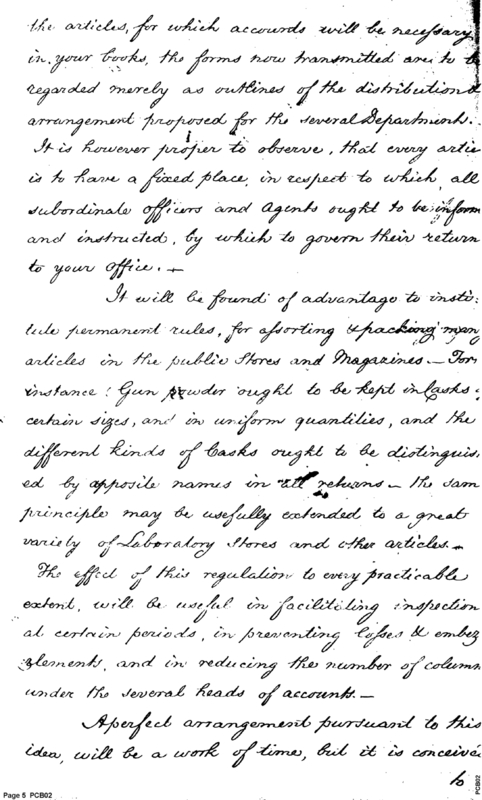 the articles, for which accounts will be necessary
in your books, the forms now transmitted are to b
regarded merely as outlines of the distribution &
arrangement proposed for the several Departments.
It is however proper to observe, that every artic
is to have a fixed place, in respect to which all
subordinate officers and Agents ought to be inform
and instructed, by which to govern their return
to your office. —
It will be found of advantage to insti:
tute permanent rules, for assorting & packing many
articles in the public Stores and Magazines — For
instance: Gun powder ought to be kept in Casks
certain sizes, and in uniform quantities, and the
different kinds of Casks ought to be distinguis
ed by apposite names in all returns — the sam
principle may be usefully extended to a great
variety of Laboratory Stores and other articles. —
The effect of this regulation to every practicable
extent, will be useful in facilitating inspection
at certain periods, in preventing losses & embez
zlements, and in reducing the number of column
under the several heads of accounts. —
A perfect arrangement pursuant to this
idea, will be a work of time, but it is conceive
to
Page 5 PCB02
PCB02